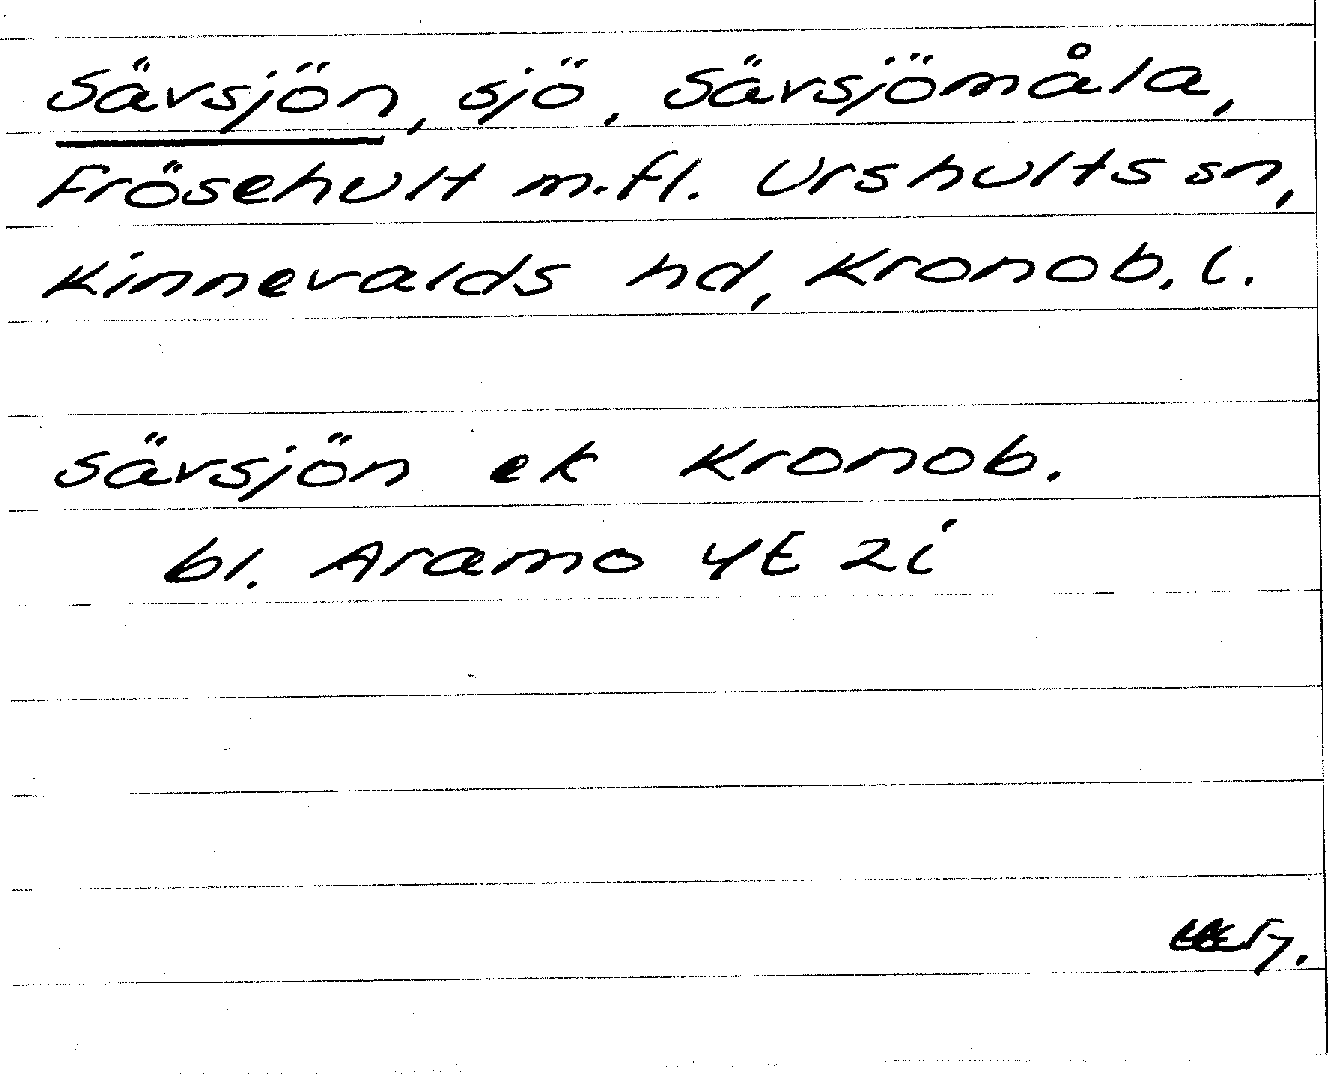 Sävsjön, sjö, Sävsjömåla,
Frösehult m.fl. Urshults sn,
Kinnevalds hd, Kronob. l.
Sävsjön ek Kronob.
bl. Aramo 4E 2i